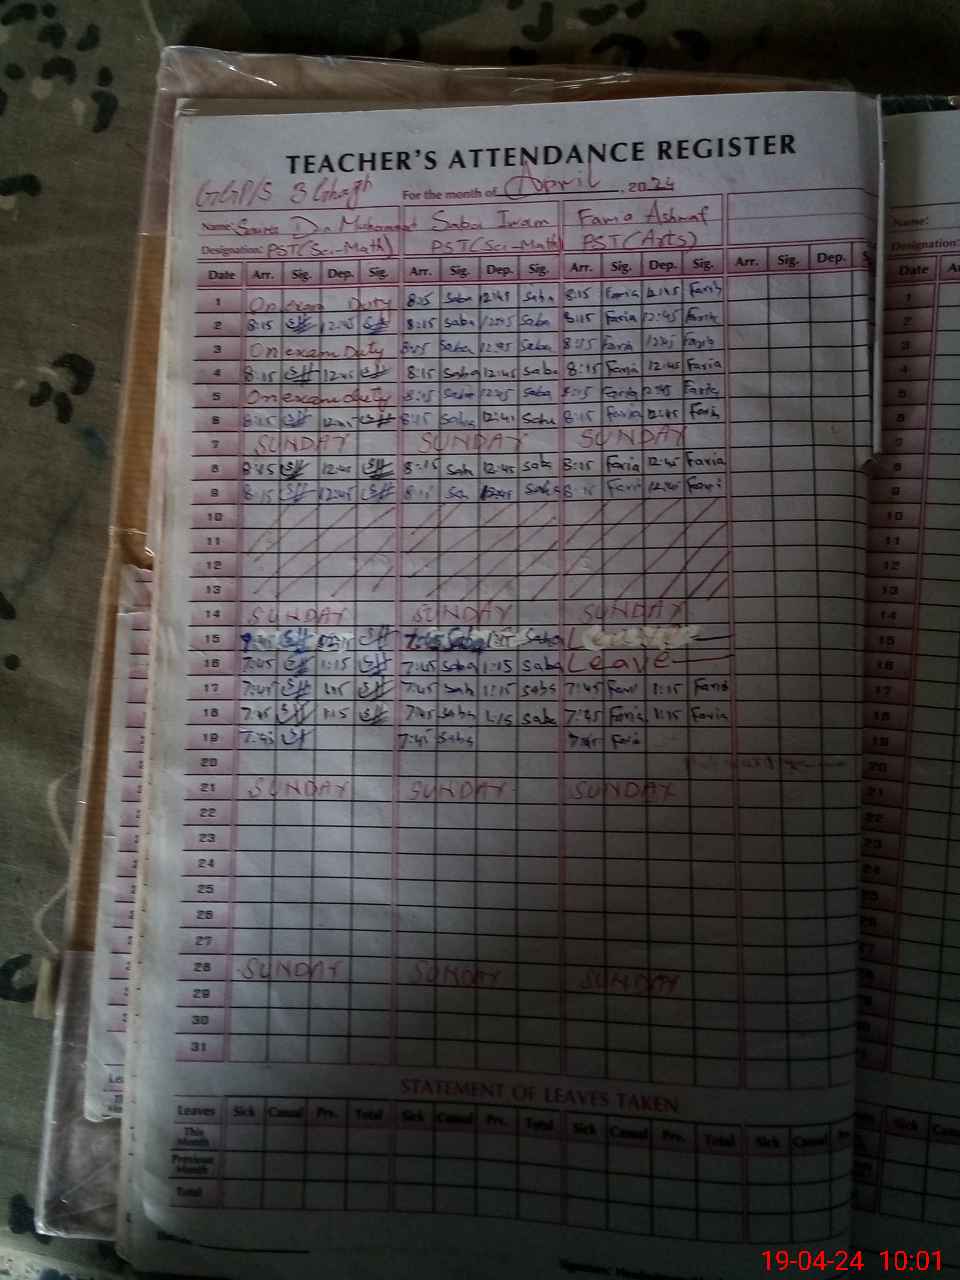 TEACHER'S ATTENDANCE REGISTER
For the month of April, 2024
Name: Saba Faria Ashraf
Designation: PST(Sci-Math) PST(Sci-Math) PST(Arts)
Date Arr. Sig. Dep. Sig. Arr. Sig. Dep. Sig. Arr. Sig. Dep. Sig. Arr. Sig. Dep.
1 On exam Duty 8:15 Saba 12:45 Saba 8:15 Faria 12:45 Faria
2 8:15 12:45 8:15 Saba 12:45 Saba 8:15 Faria 12:45 Faria
3 On exam Duty 8:15 Saba 12:45 Saba 8:15 Faria 12:45 Faria
4 8:15 12:45 8:15 Saba 12:45 Saba 8:15 Faria 12:45 Faria
5 On exam duty 8:15 Saba 12:45 Saba 8:15 Faria 12:45 Faria
6 8:15 12:45 8:15 Saba 12:45 Saba 8:15 Faria 12:45 Faria
7 SUNDAY SUNDAY SUNDAY
8 8:15 12:45 8:15 Sab 12:45 Saba 8:15 Faria 12:45 Faria
9 8:15 12:45 8:15 12:45 Saba 8:15 Fari 12:45 Fari
10
11
12
13
14 SUNDAY SUNDAY SUNDAY
15 7:45 Saba 1:15 Saba
16 7:45 1:15 7:45 Saba 1:15 Saba Leave
17 7:45 1:15 7:45 Sab 1:15 Saba 7:45 Fari 1:15 Faria
18 7:45 1:15 7:45 Saba 1:15 Saba 7:45 Faria 1:15 Faria
19 7:45 7:45 Saba 7:45 Faria
20
21 SUNDAY SUNDAY SUNDAY
22
23
24
25
26
27
28 SUNDAY SUNDAY SUNDAY
29
30
31
STATEMENT OF LEAVES TAKEN
Leaves Sick Casual Prv. Total Sick Casual Prv. Total Sick Casual Prv. Total Sick Casual
This Month
Previous Month
Total
Name:
Designation:
Date
19-04-24 10:01